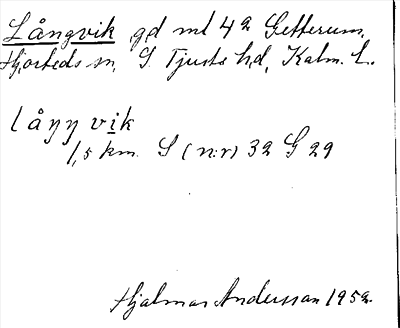 Långvik gd ml 4a Getterum,
Hjorteds sn, S. Tjusts hd, Kalm. L.
låŋŋ vik
1,5 km. S (n:r) 32 G 29
Hjalmar Andersson 1952.